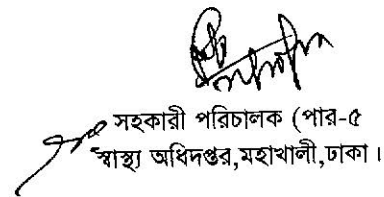 সহকারী পরিচালক (পার-৫
স্বাস্থ্য অধিদপ্তর,মহাখালী,ঢাকা।